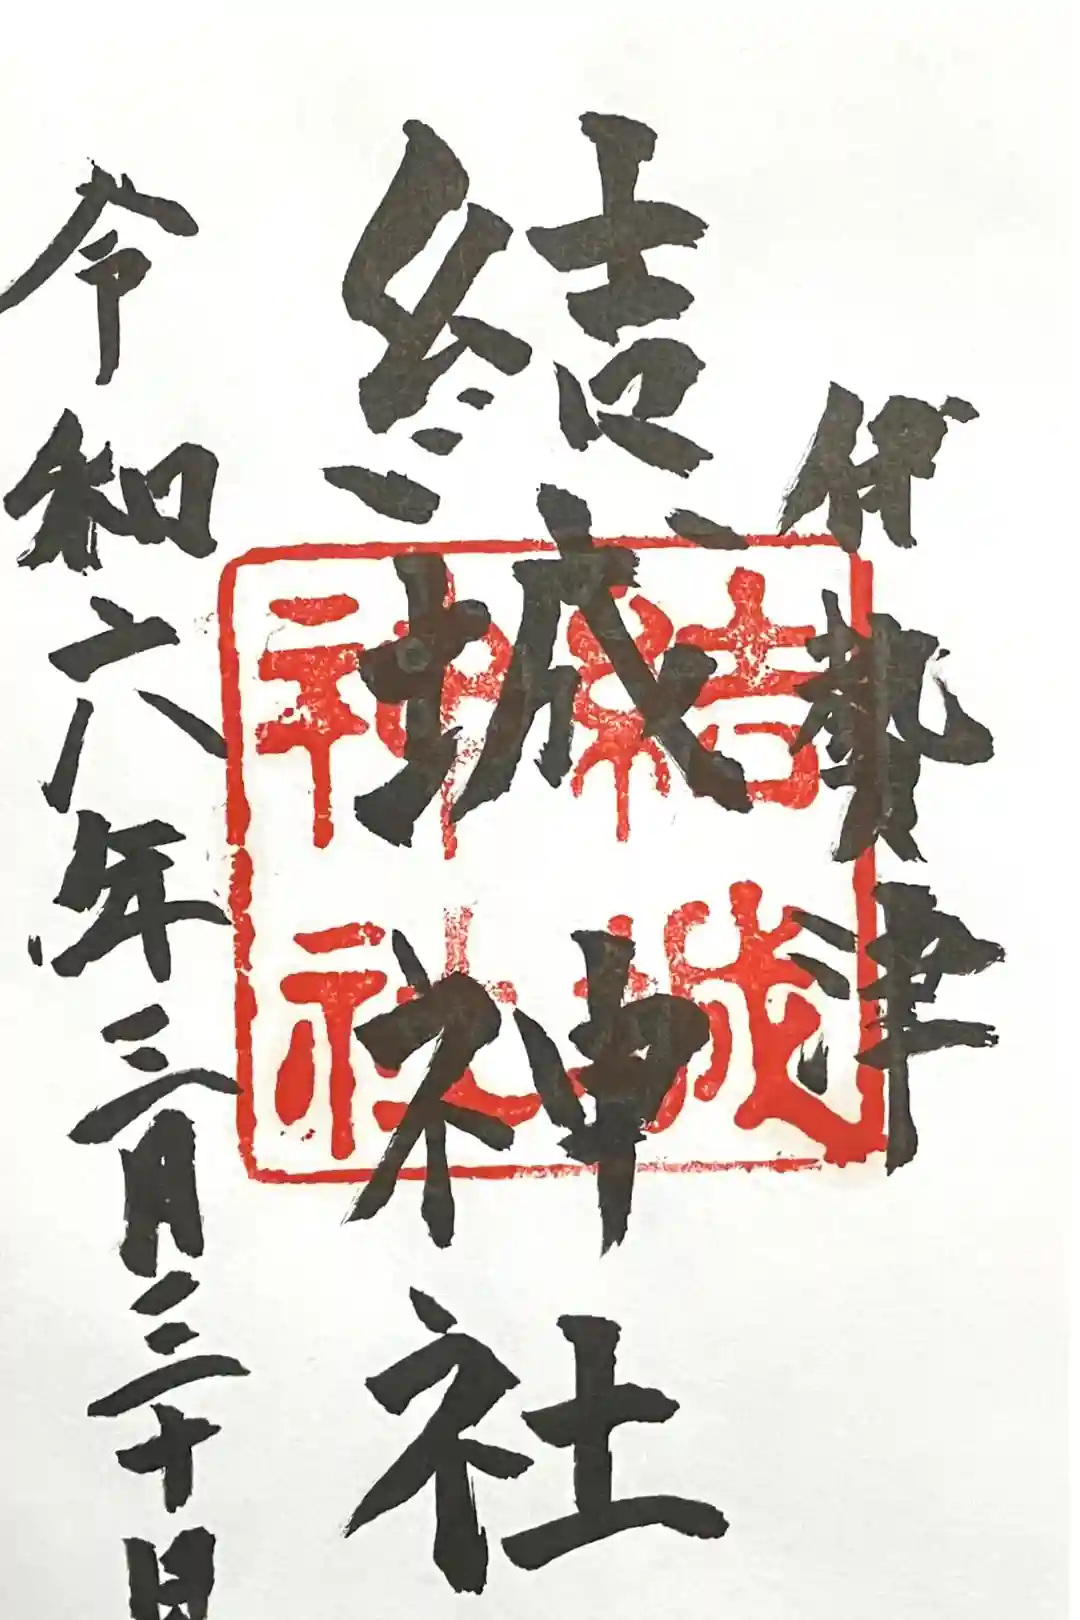 伊勢津
結城神社
結城
神社
令和六年三月三十日